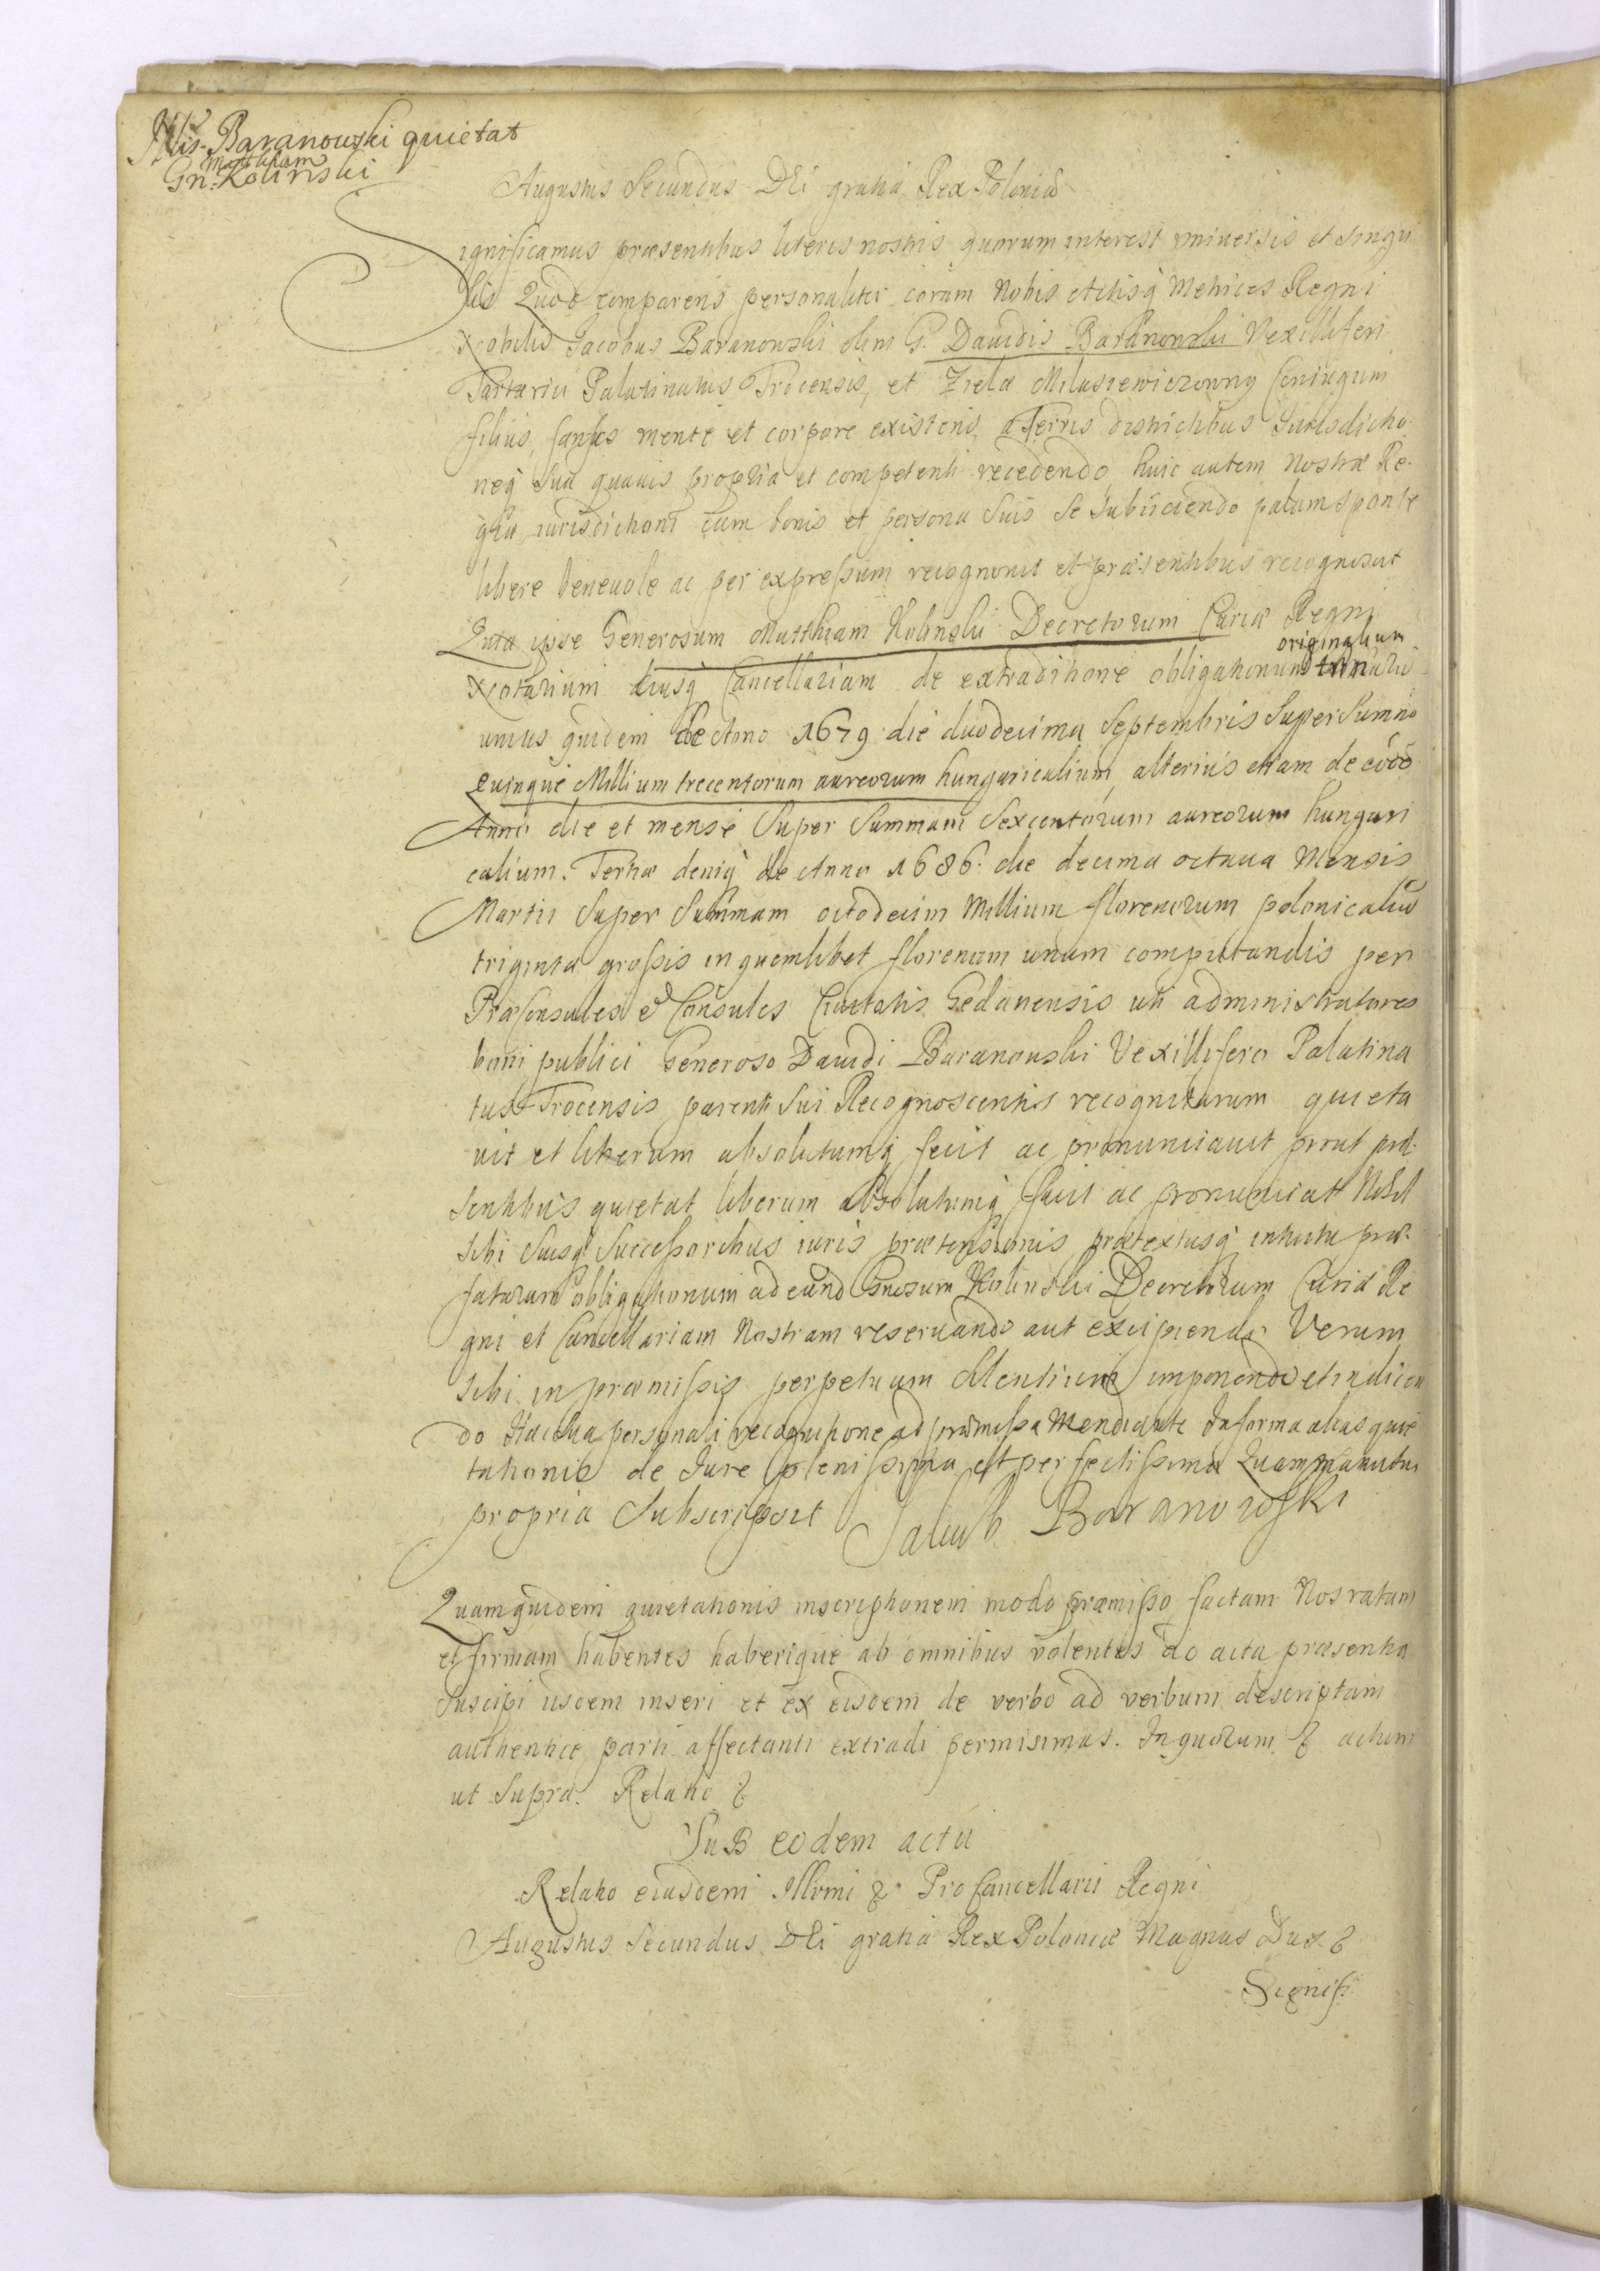 Nlis Baranowski quietat
Matthiam
Gn. Kolinski
Augustus Secundus DEi gratia Rex Poloniæ
Significamus præsentibus literis nostris quorum interest universis et singu
lis Quod comparens personaliter coram Nobis Actisq Metrices Regni
Nobilis Jacobus Baranowski olim G. Dauidis Baranowski Vexilliferi
Tartarici Palatinatus Trocensis, et Ziela Milasiewiczowny Coniugum
filius, sanus mente et corpore existens, a Terris districtibus Jurisdictio
neq sua quauis propria et competenti recedendo, huic autem Nostræ Re-
giæ iurisdictioni cum bonis et persona suis se subiiciendo palam sponte
libere beneuole ac per expressum recognouit et præsentibus recognoscit
Quia ipse Generosum Matthiam Kolinski Decretorum Curiæ Regni
originalium
Notarium eiusq Cancellariam de extraditione obligationum trinaru
unius quidem de Anno 1679 die duodecima Septembris Super Summo
Quinque Millium trecentorum aureorum hungaricalium, alterius etiam de eodē
Anno die et mense Super Summam Sexcentorum aureorum hungari
calium. Tertiæ deniq de Anno 1686. die decima octaua Mensis
Martii Super Summam octodecim Millium florenorum polonicaliū
triginta grossis in quemlibet florenum unum computandis per
PræConsules & Consules Ciuitatis Gedanensis uti administratores
boni publici Generoso Dauidi Baranowski Vexillifero Palatina
tus Trocensis parenti Sui Recognoscentis recognitarum quieta
uit et liberum absolutumq fecit ac pronunciauit prout præ-
sentibus quietat liberum absolutumq facit ac pronunciat Nihil
sibi Suisq Successoribus iuris prætensionis prætextusq intuitu præ-
fatarum obligationum ad eund Gnosum Kolinski Decretorum Curiæ Re
gni et Cancellariam Nostram reseruando aut excipiendo Verum
sibi in præmissis perpetuum silentium imponendo et indicen
do Hac sua personali recognitione ad præmissa Mendiante In forma alias quie
tationis de Jure plenissima et perfectissima Quam manu tus
propria Subscripsit Jakub Baranowski
Quam quidem quietationis inscriptionem modo præmisso factam Nos ratam
et firmam habentes haberique ab omnibus volentes ad acta præsentia
Suscipi iisdem inseri et ex eisdem de verbo ad verbum descriptam
authentice parti affectanti extradi permisimus. In quorum & actum
ut supra. Relatio &
SuB eodem actu
Relatio eiusdem Illrmi & ProCancellarii Regni
Augustus Secundus DEi gratia Rex Poloniæ Magnus Dux &
Signifi